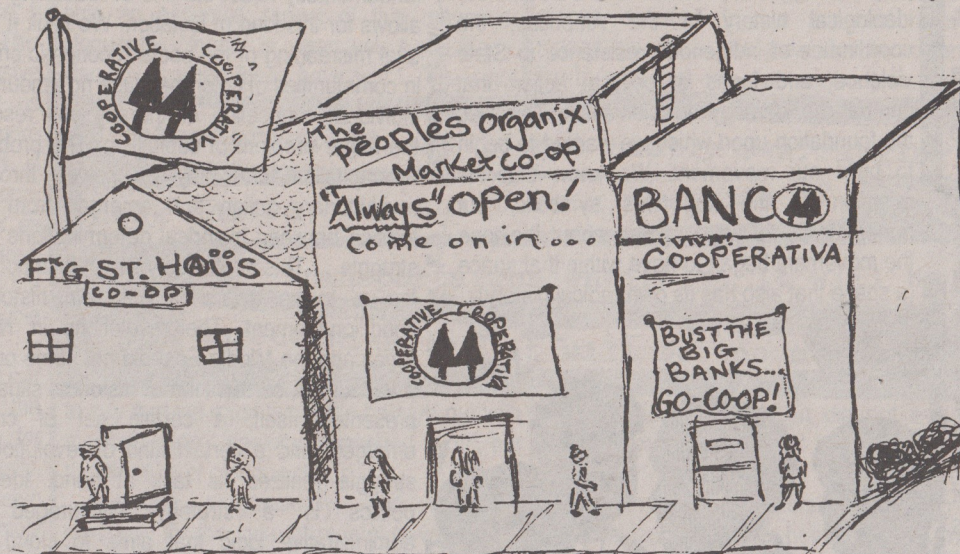 COOPERATIVE COOPERATIVA
FIG ST. HAÜS
CO-OP
The
People's Organix
Market Co-op
"Always" Open!
Come on in...
COOPERATIVE COOPERATIVA
BANCO
¡VIVA!
CO-OPERATIVA
BUST THE
BIG
BANKS...
GO-CO-OP!